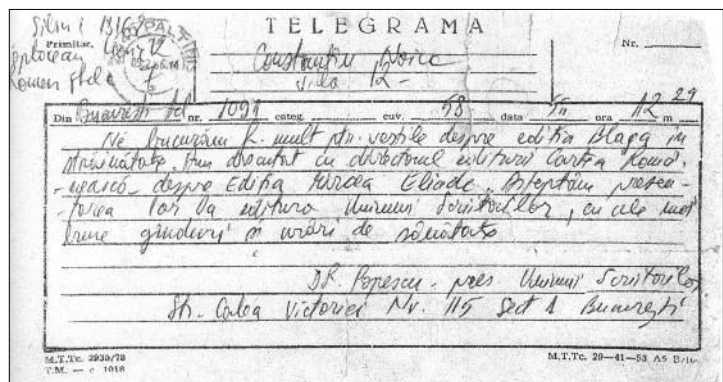 TELEGRAMA
Primitor,
Nr.
Constantin Noica
Vila 12
Din București nr. 1091 categ. cuv. 58 data ora 12 m 29
Ne bucurăm f. mult ptr. vestile despre editia Blaga in
străinătate. Am discutat cu directorul editurii Cartea Româ-
-nească despre Editia Mircea Eliade. Asteptăm prezen-
-tarea lor la editura Uniunii Scriitorilor, cu cele mai
bune gînduri si urări de sănătate
DR. Popescu - pres Uniunii Scriitorilor
Str. Calea Victoriei Nr. 115 Sect 1 București
M.T.Tc. 2939/78
T.M. — c 1018
M.T.Tc. 29—41—53 A5